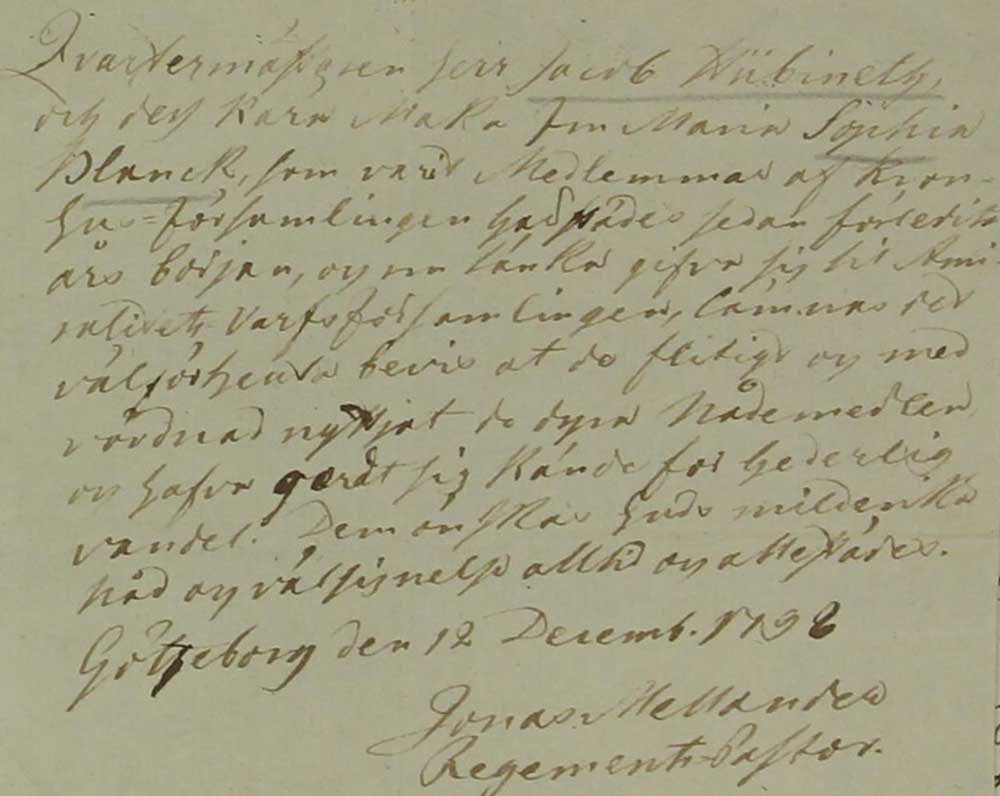 Qvartermästaren Herr Jacob Hübineth,
och dess kära Maka Fru Maria Sophia
Planck, som varit Medlemmar af Kron-
hus-församlingen härstädes sedan förledit
års början, och nu tänka gifva sig til Ami-
ralitets Varfsförsamlingen, lämnas det
välförtjenta bevis at de flitigt och med
vördnad nyttjat de dyra Nådemedlen
och hafva gjordt sig kände för hederlig
vandel. Dem önskas Guds milderika
nåd och välsignelse alltid och allestädes.
Götheborg den 12 Decemb. 1798
Jonas Mellander
Regements-Pastor.